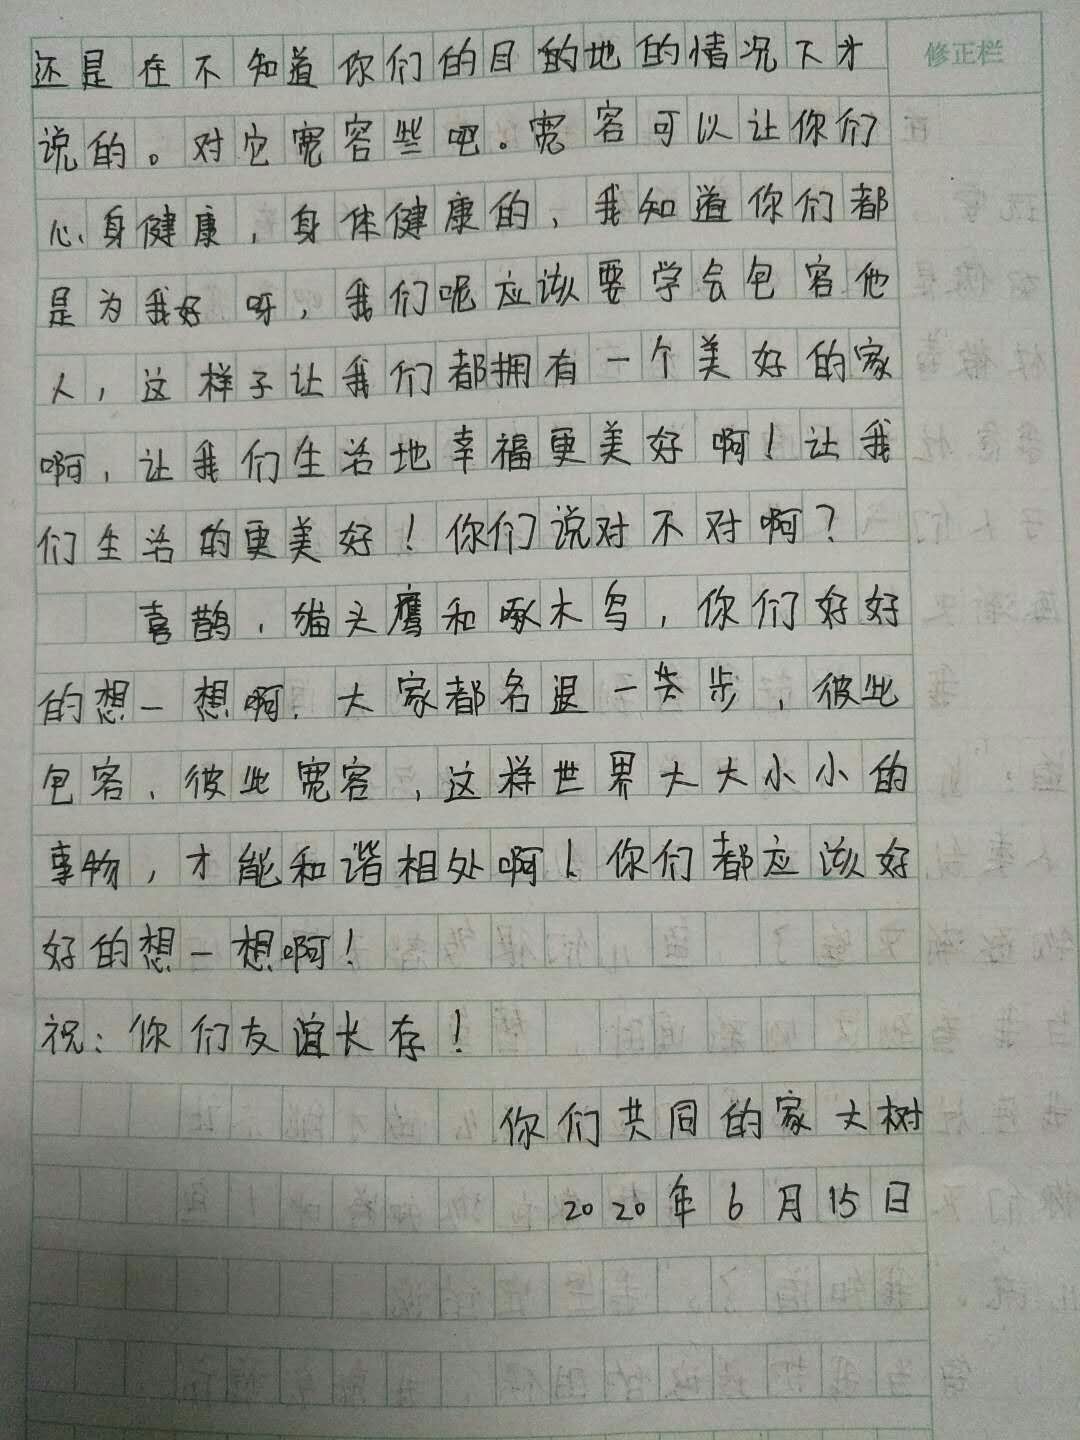 还是在不知道你们的目的地的情况下才
修正栏
说的。对它宽容些吧。宽容可以让你们
心身健康，身体健康的，我知道你们都
是为我好呀，我们呢应该要学会包容他
人，这样子让我们都拥有一个美好的家
啊，让我们生活地幸福更美好啊！让我
们生活的更美好！你们说对不对啊？
喜鹊，猫头鹰和啄木鸟，你们好好
的想一想啊。大家都各退一步，彼此
包容、彼此宽容，这样世界大大小小的
事物，才能和谐相处啊！你们都应该好
好的想一想啊！
祝：你们友谊长存！
你们共同的家大树
2020年6月15日